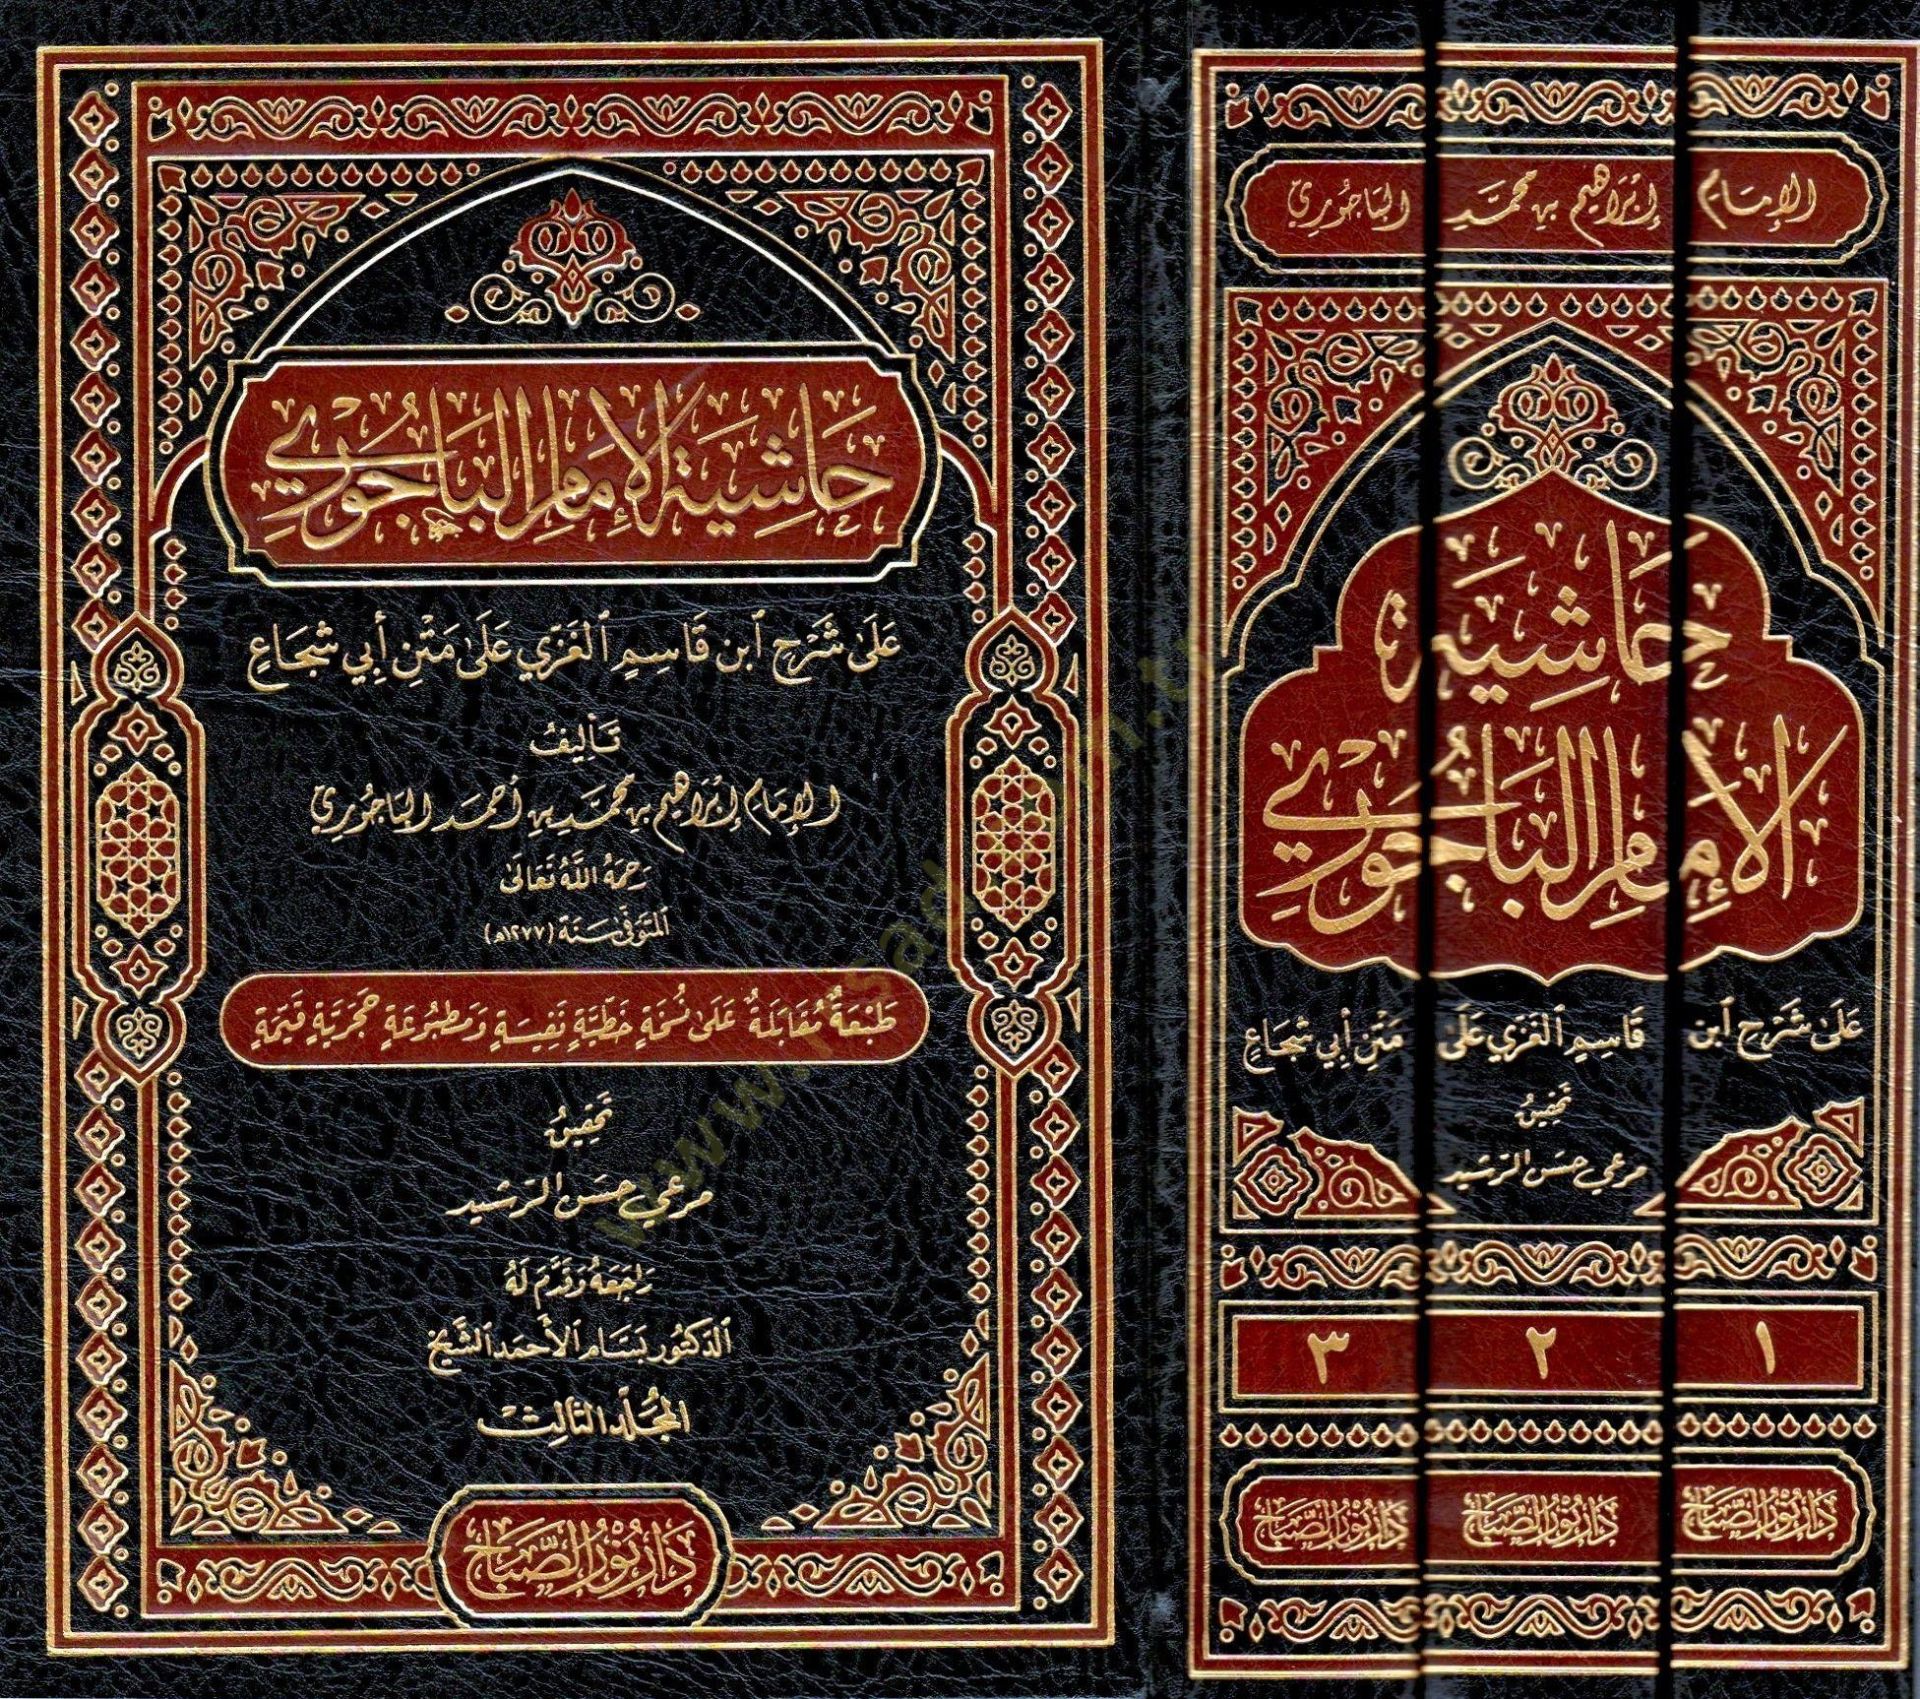 حَاشِيَةُ الإِمَامِ البَاجُورِيِّ
عَلَى شَرْحِ ابْنِ قَاسِمِ الغَزِّي عَلَى مَتْنِ أَبِي شُجَاعٍ
تَأْلِيفُ
الإِمَامِ إِبْرَاهِيمَ بْنِ مُحَمَّدِ بْنِ أَحْمَدَ البَاجُورِيِّ
رَحِمَهُ اللَّهُ تَعَالَى
المُتَوَفَّى سَنَة (١٢٧٧هـ)
طَبْعَةٌ مُقَابَلَةٌ عَلَى نُسْخَةٍ خَطِّيَّةٍ نَفِيسَةٍ وَمَطْبُوعَةٍ حَجَرِيَّةٍ قَيِّمَةٍ
تَحْقِيقُ
مرعي حسن الرشيد
رَاجَعَهُ وَقَدَّمَ لَهُ
الدكتور بسام الأحمد الشيخ
المُجَلَّد الثَّالِث
دَارُ نُورِ الصَّبَاحِ
الإِمَام إِبْرَاهِيم بن محمَّد البَاجُورِيّ
حَاشِيَة
الإِمَامِ البَاجُورِيِّ
عَلَى شَرْحِ ابْنِ قَاسِمِ الغَزِّي عَلَى مَتْنِ أَبِي شُجَاعٍ
تَحْقِيقُ
مرعي حسن الرشيد
١ ٢ ٣
دَارُ نُورِ الصَّبَاحِ دَارُ نُورِ الصَّبَاحِ دَارُ نُورِ الصَّبَاحِ